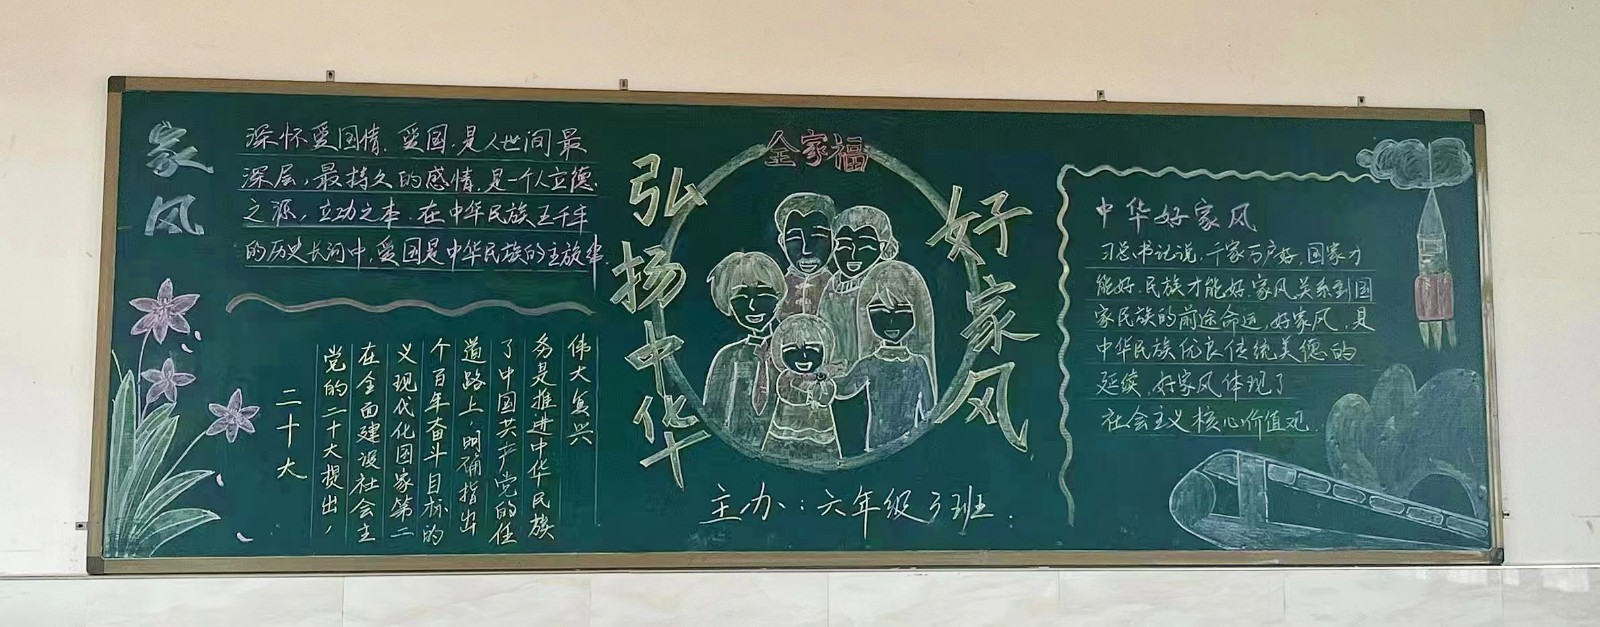 家风
深怀爱国情.爱国.是人世间最
深层,最持久的感情,是一个人立德
之源,立功之本.在中华民族五千年
的历史长河中,爱国是中华民族的主旋律.
二十大
党的二十大提出,
在全面建设社会主
义现代化国家第二
个百年奋斗目标的
道路上,明确指出
了中国共产党的任
务是推进中华民族
伟大复兴
全家福
弘扬中华
好家风
主办:六年级3班.
中华好家风
习总书记说,千家万户好,国家才
能好.民族才能好.家风关系到国
家民族的前途命运,好家风,是
中华民族优良传统美德的
延续,好家风体现了
社会主义核心价值观